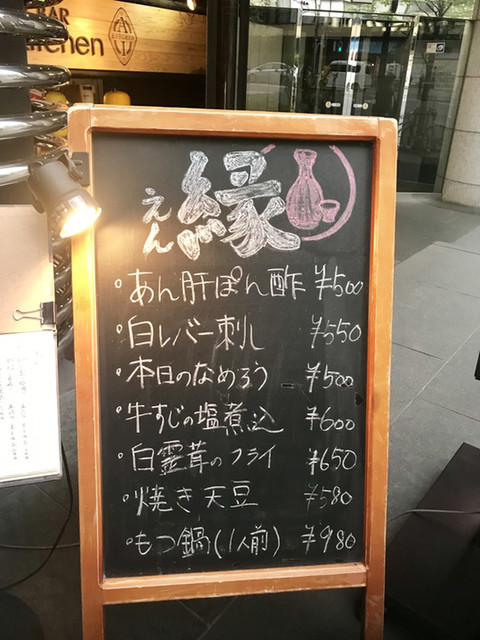 BAR
Kitchen
えん
縁
・あん肝ぽん酢 ¥500
・白レバー刺し ¥550
・本日のなめろう ¥500
・牛すじの塩煮込 ¥600
・白霊茸のフライ ¥650
・焼き天豆 ¥580
・もつ鍋(1人前) ¥980